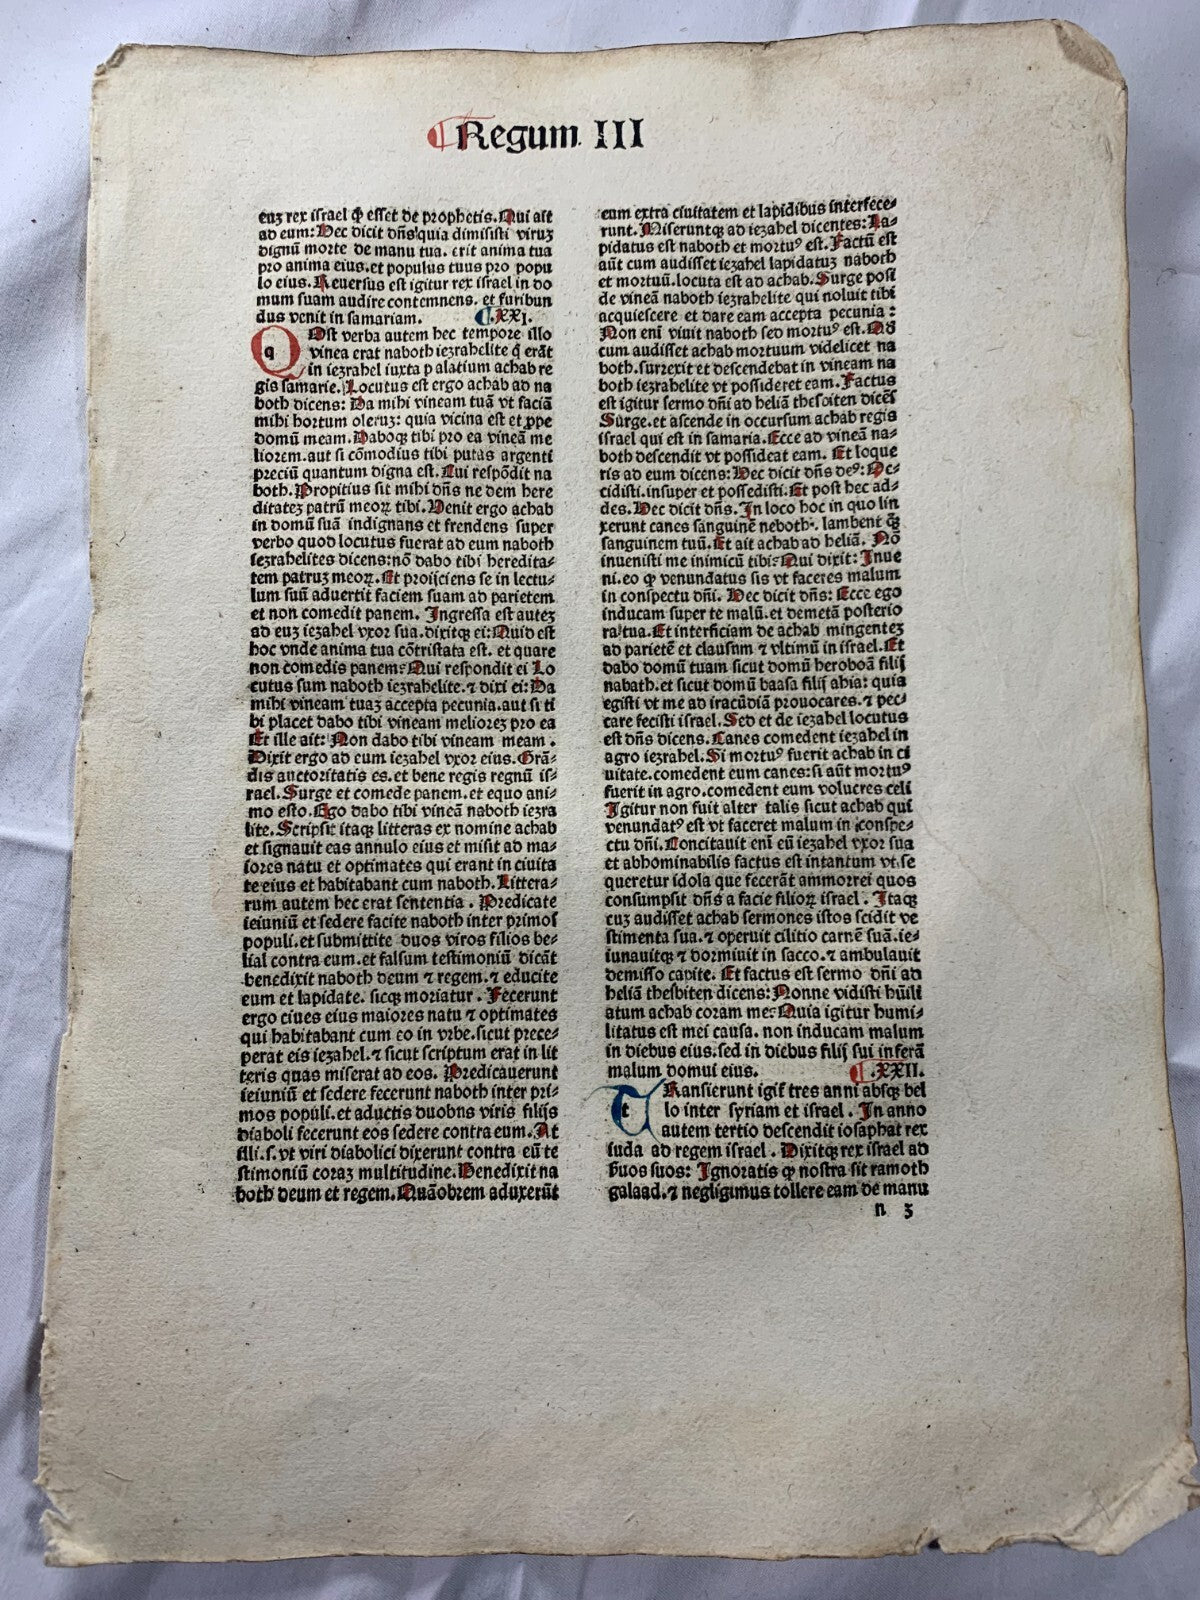 Regum III
euʒ rex iſrael ꝙ̃ eſſet de prophetis. Qui ait
ad eum: Hec dicit dñs quia dimiſiſti viruʒ
dignũ morte de manu tua. erit anima tua
pro anima eius. et populus tuus pro popu
lo eius. Reuerſus eſt igitur rex iſrael in do
mum ſuam audire contemnens. et furibun
dus venit in ſamariam. ¶.XXI.
q Oſt verba autem hec tempore illo
vinea erat naboth iezrahelite q̃ erãt
in iezrahel iuxta palatium achab re
gis ſamarie. Locutus eſt ergo achab ad na
both dicens: Da mihi vineam tuã vt faciã
mihi hortum oleruʒ: quia vicina eſt et ꝓpe
domũ meam. Daboqʒ tibi pro ea vineã me
liorem. aut ſi cõmodius tibi putas argenti
preciũ quantum digna eſt. Cui reſpõdit na
both. Propitius ſit mihi dñs ne dem here
ditateʒ patrũ meoꝝ tibi. Uenit ergo achab
in domũ ſuã indignans et frendens ſuper
verbo quod locutus fuerat ad eum naboth
ieʒrahelites dicens: nõ dabo tibi heredita⸗
tem patruʒ meoꝝ. Et proijciens ſe in lectu⸗
lum ſuũ aduertit faciem ſuam ad parietem
et non comedit panem. Ingreſſa eſt auteʒ
ad euʒ iezahel vxor ſua. dixitqʒ ei: Quid eſt
hoc vnde anima tua cõtriſtata eſt. et quare
non comedis panem: Qui reſpondit ei Lo
cutus ſum naboth iezrahelite. ⁊ dixi ei: Da
mihi vineam tuaʒ accepta pecunia. aut ſi ti
bi placet dabo tibi vineam meliorez pro ea
Et ille ait: Non dabo tibi vineam meam.
Dixit ergo ad eum iezahel vxor eius. Grã⸗
dis auctoritatis es. et bene regis regnũ iſ⸗
rael. Surge et comede panem. et equo ani⸗
mo eſto. Ego dabo tibi vineã naboth iezra
lite. Scripſit itaqʒ litteras ex nomine achab
et ſignauit eas annulo eius et miſit ad ma⸗
iores natu et optimates qui erant in ciuita
te eius et habitabant cum naboth. Littera⸗
rum autem hec erat ſententia. Predicate
ieiuniũ et ſedere facite naboth inter primoſ
populi. et ſubmittite duos viros filios be⸗
lial contra eum. et falſum teſtimoniũ dicãt
benedixit naboth deum ⁊ regem. ⁊ educite
eum et lapidate. ſicqʒ moriatur. Fecerunt
ergo ciues eius maiores natu ⁊ optimates
qui habitabant cum eo in vrbe. ſicut prece⸗
perat eis iezahel. ⁊ ſicut ſcriptum erat in lit
teris quas miſerat ad eos. Predicauerunt
ieiuniũ et ſedere fecerunt naboth inter pri⸗
mos populi. et aductis duobns viris filijs
diaboli fecerunt eos ſedere contra eum. At
illi. ſ. vt viri diabolici dixerunt contra eũ te
ſtimoniũ coraʒ multitudine. Benedixit na
both deum et regem. Quãobrem aduxerũt
eum extra ciuitatem et lapidibus interfece⸗
runt. Miſeruntqʒ ad iezahel dicentes: La⸗
pidatus eſt naboth et mortuꝰ eſt. Factũ eſt
aũt cum audiſſet iezahel lapidatuʒ naboth
et mortuũ. locuta eſt ad achab. Surge poſſi
de vineã naboth iezrahelite qui noluit tibi
acquieſcere et dare eam accepta pecunia:
Non enĩ viuit naboth ſed mortuꝰ eſt. Qđ
cum audiſſet achab mortuum videlicet na
both. ſurrexit et deſcendebat in vineam na
both iezrahelite vt poſſideret eam. Factus
eſt igitur ſermo dñi ad heliã theſbiten dicẽſ
Surge. et aſcende in occurſum achab regis
iſrael qui eſt in ſamaria. Ecce ad vineã na⸗
both deſcendit vt poſſideat eam. Et loque
ris ad eum dicens: Hec dicit dñs deꝰ: Oc⸗
cidiſti. inſuper et poſſediſti. Et poſt hec ad⸗
des. Hec dicit dñs. In loco hoc in quo lin
xerunt canes ſanguinẽ neboth. lambent q̃qʒ
ſanguinem tuũ. Et ait achab ad heliã. Nõ
inueniſti me inimicũ tibi: Qui dixit: Inue
ni. eo ꝙ venundatus ſis vt faceres malum
in conſpectu dñi. Hec dicit dñs: Ecce ego
inducam ſuper te malũ. et demetã poſterio
ra tua. Et interficiam de achab mingenteʒ
ad parietẽ et clauſum ⁊ vltimũ in iſrael. Et
dabo domũ tuam ſicut domũ heroboã filij
nabath. et ſicut domũ baaſa filij ahia: quia
egiſti vt me ad iracũdiã prouocares. ⁊ pec⸗
care feciſti iſrael. Sed et de iezahel locutus
eſt dñs dicens. Canes comedent iezahel in
agro iezrahel. Si mortuꝰ fuerit achab in ci
uitate. comedent eum canes: ſi aũt mortuꝰ
fuerit in agro. comedent eum volucres celi
Igitur non fuit alter talis ſicut achab qui
venundatꝰ eſt vt faceret malum in conſpe⸗
ctu dñi. Concitauit enĩ eũ iezahel vxor ſua
et abhominabilis factus eſt intantum vt ſe
queretur idola que fecerãt ammorrei quos
conſumpſit dñs a facie filioꝝ iſrael. Itaqʒ
cuʒ audiſſet achab ſermones iſtos ſcidit ve
ſtimenta ſua. ⁊ operuit cilitio carnẽ ſuã. ie⸗
iunauitqʒ ⁊ dormiuit in ſacco. ⁊ ambulauit
demiſſo capite. Et factus eſt ſermo dñi ad
heliã theſbiten dicens: Nonne vidiſti hũili
atum achab coram me: Quia igitur humi⸗
litatus eſt mei cauſa. non inducam malum
in diebus eius. ſed in diebus filij ſui inferã
malum domui eius. ¶.XXII.
t Ranſierunt igiť tres anni abſqʒ bel
lo inter ſyriam et iſrael. In anno
autem tertio deſcendit ioſaphat rex
iuda ad regem iſrael. Dixitqʒ rex iſrael ad
ſuos ſuos: Ignoratis ꝙ noſtra ſit ramoth
galaad. ⁊ negligimus tollere eam de manu
n 3